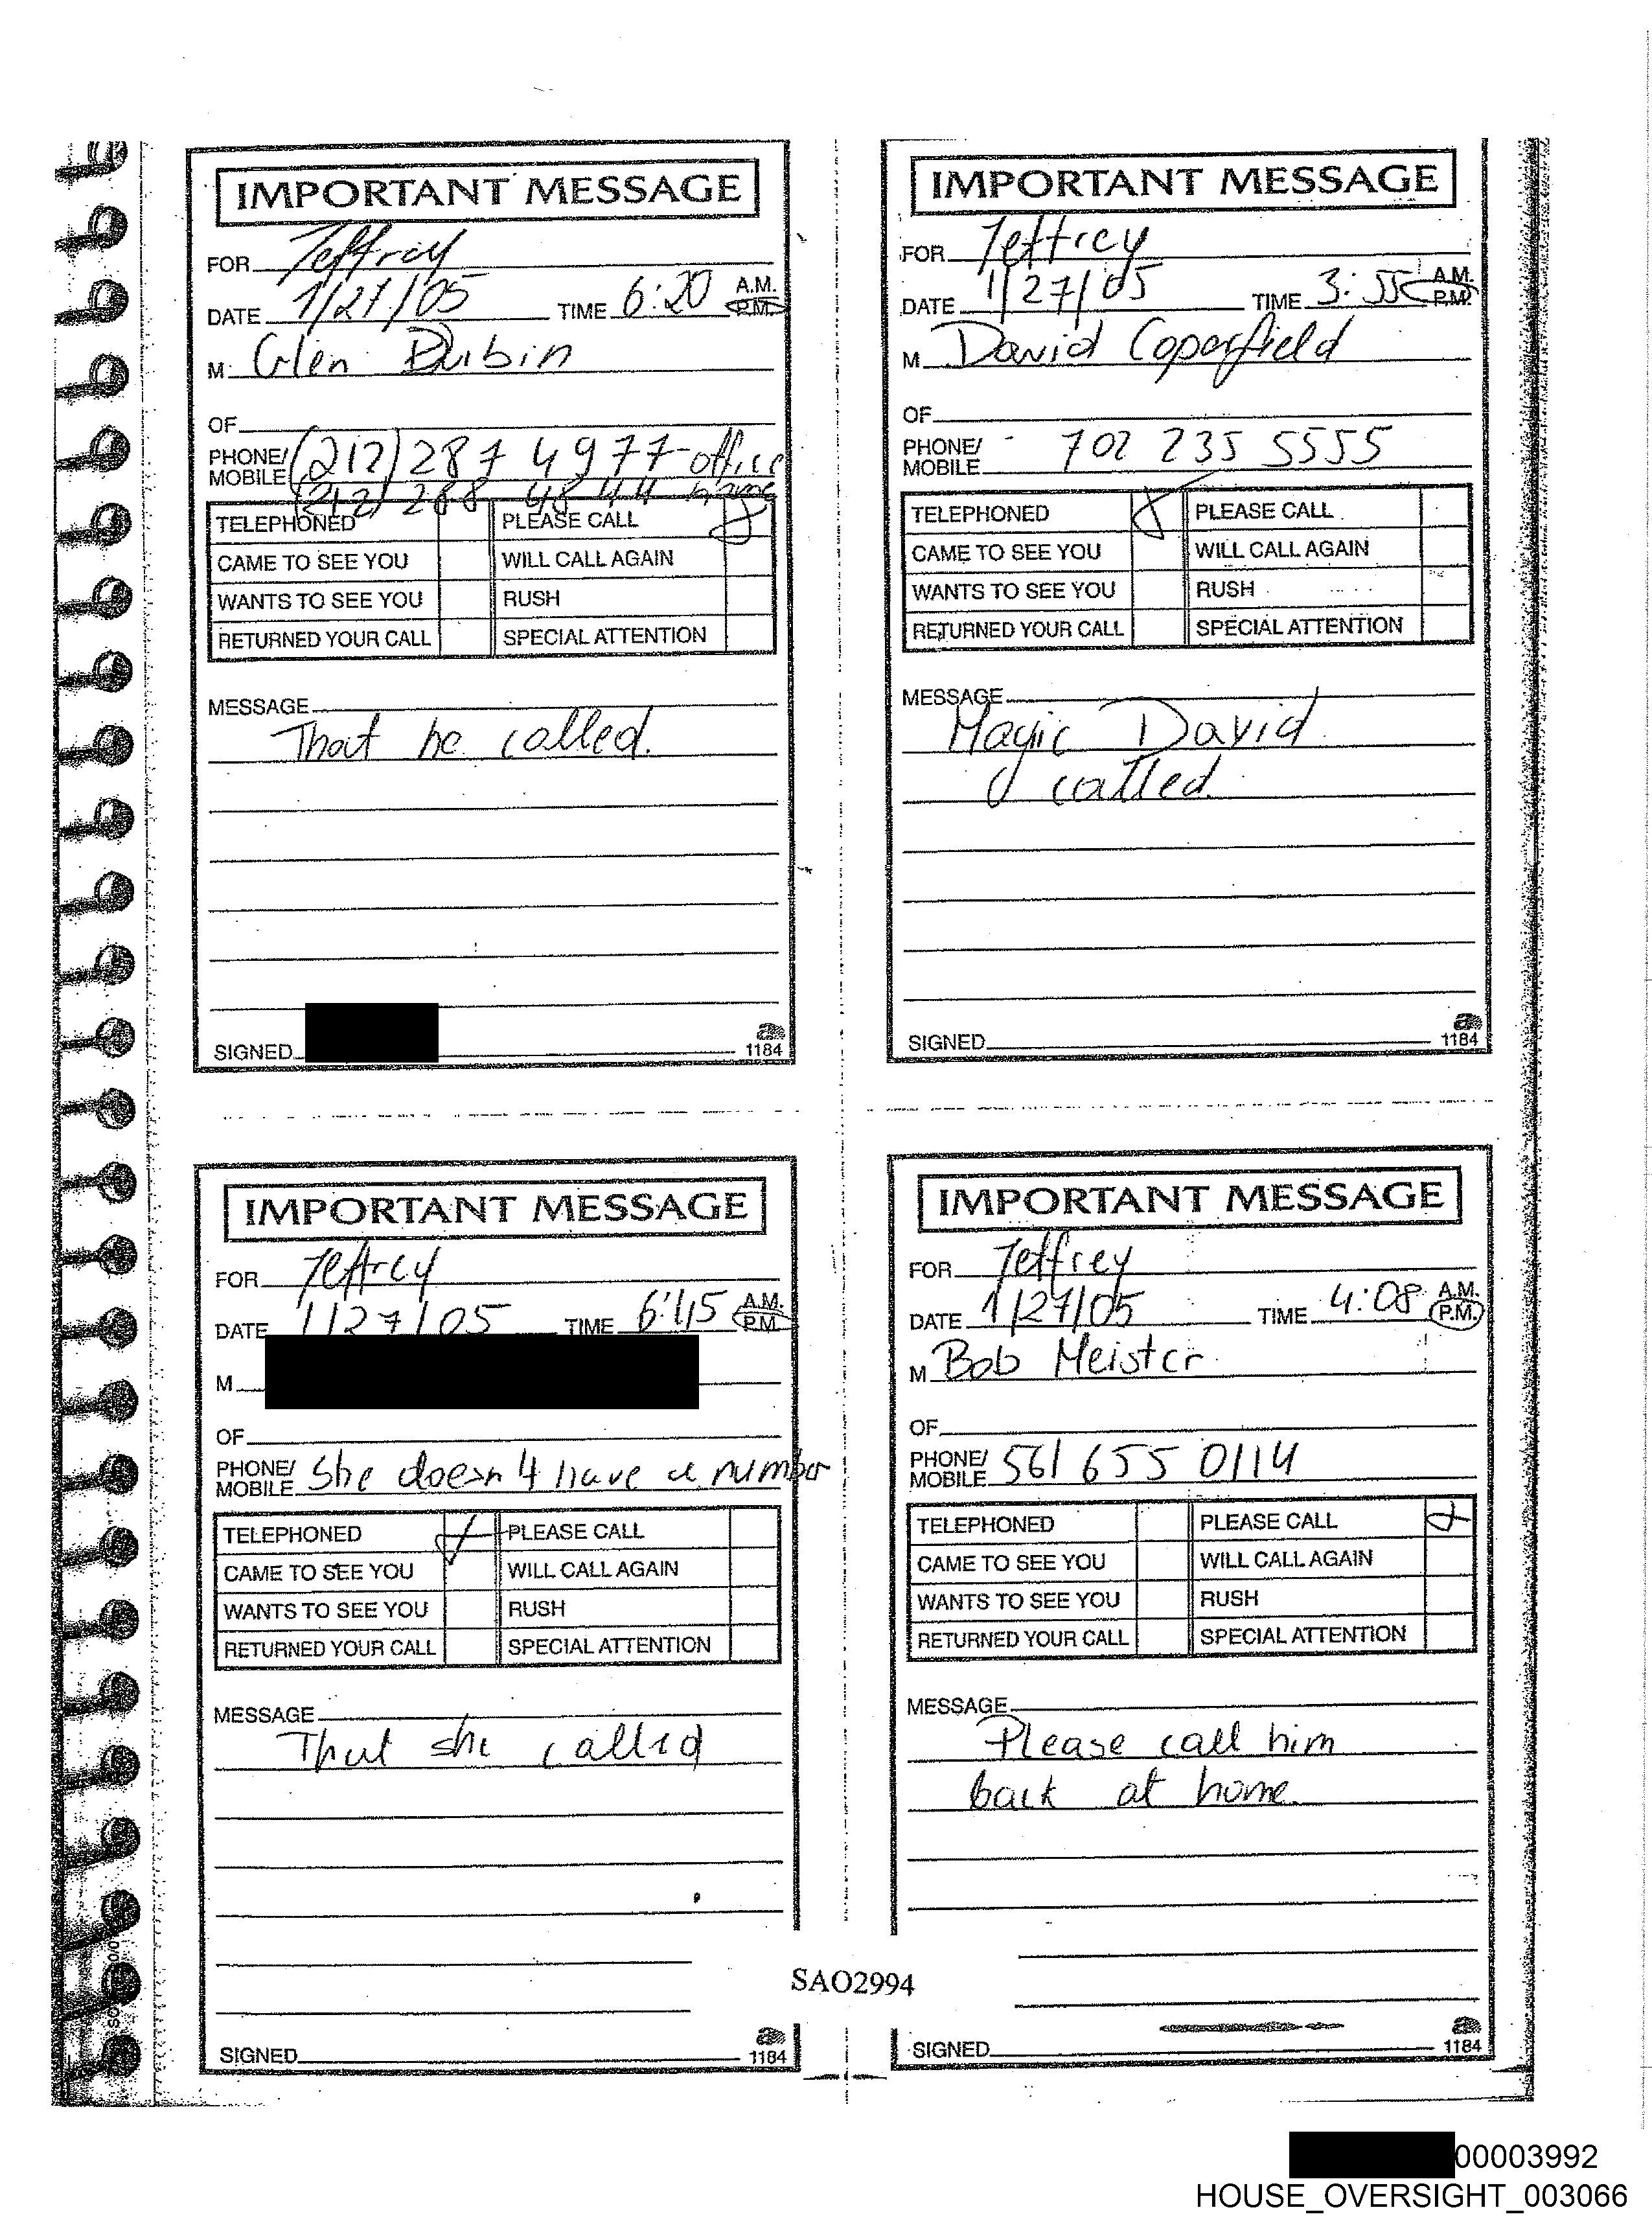 IMPORTANT MESSAGE
FOR Jeffrey
DATE 1/27/05 TIME 6:20 A.M. P.M.
M Glen Dubin
OF
PHONE/ MOBILE (212) 287 4977 - office
(212) 288 4844 home
TELEPHONED PLEASE CALL
CAME TO SEE YOU WILL CALL AGAIN
WANTS TO SEE YOU RUSH
RETURNED YOUR CALL SPECIAL ATTENTION
MESSAGE
That he called.
SIGNED
1184
IMPORTANT MESSAGE
FOR Jeffrey
DATE 1/27/05 TIME 3:55 A.M. P.M.
M David Coperfield
OF
PHONE/ MOBILE 702 235 5555
TELEPHONED PLEASE CALL
CAME TO SEE YOU WILL CALL AGAIN
WANTS TO SEE YOU RUSH
RETURNED YOUR CALL SPECIAL ATTENTION
MESSAGE
Magic David
called.
SIGNED
1184
IMPORTANT MESSAGE
FOR Jeffrey
DATE 1/27/05 TIME 6:45 A.M. P.M.
M
OF
PHONE/ MOBILE She doesn't have a number
TELEPHONED PLEASE CALL
CAME TO SEE YOU WILL CALL AGAIN
WANTS TO SEE YOU RUSH
RETURNED YOUR CALL SPECIAL ATTENTION
MESSAGE
That she called
SIGNED
1184
IMPORTANT MESSAGE
FOR Jeffrey
DATE 1/27/05 TIME 4:08 A.M. P.M.
M Bob Meister
OF
PHONE/ MOBILE 561 655 0114
TELEPHONED PLEASE CALL
CAME TO SEE YOU WILL CALL AGAIN
WANTS TO SEE YOU RUSH
RETURNED YOUR CALL SPECIAL ATTENTION
MESSAGE
Please call him
back at home.
SIGNED
1184
SAO2994
00003992
HOUSE_OVERSIGHT_003066